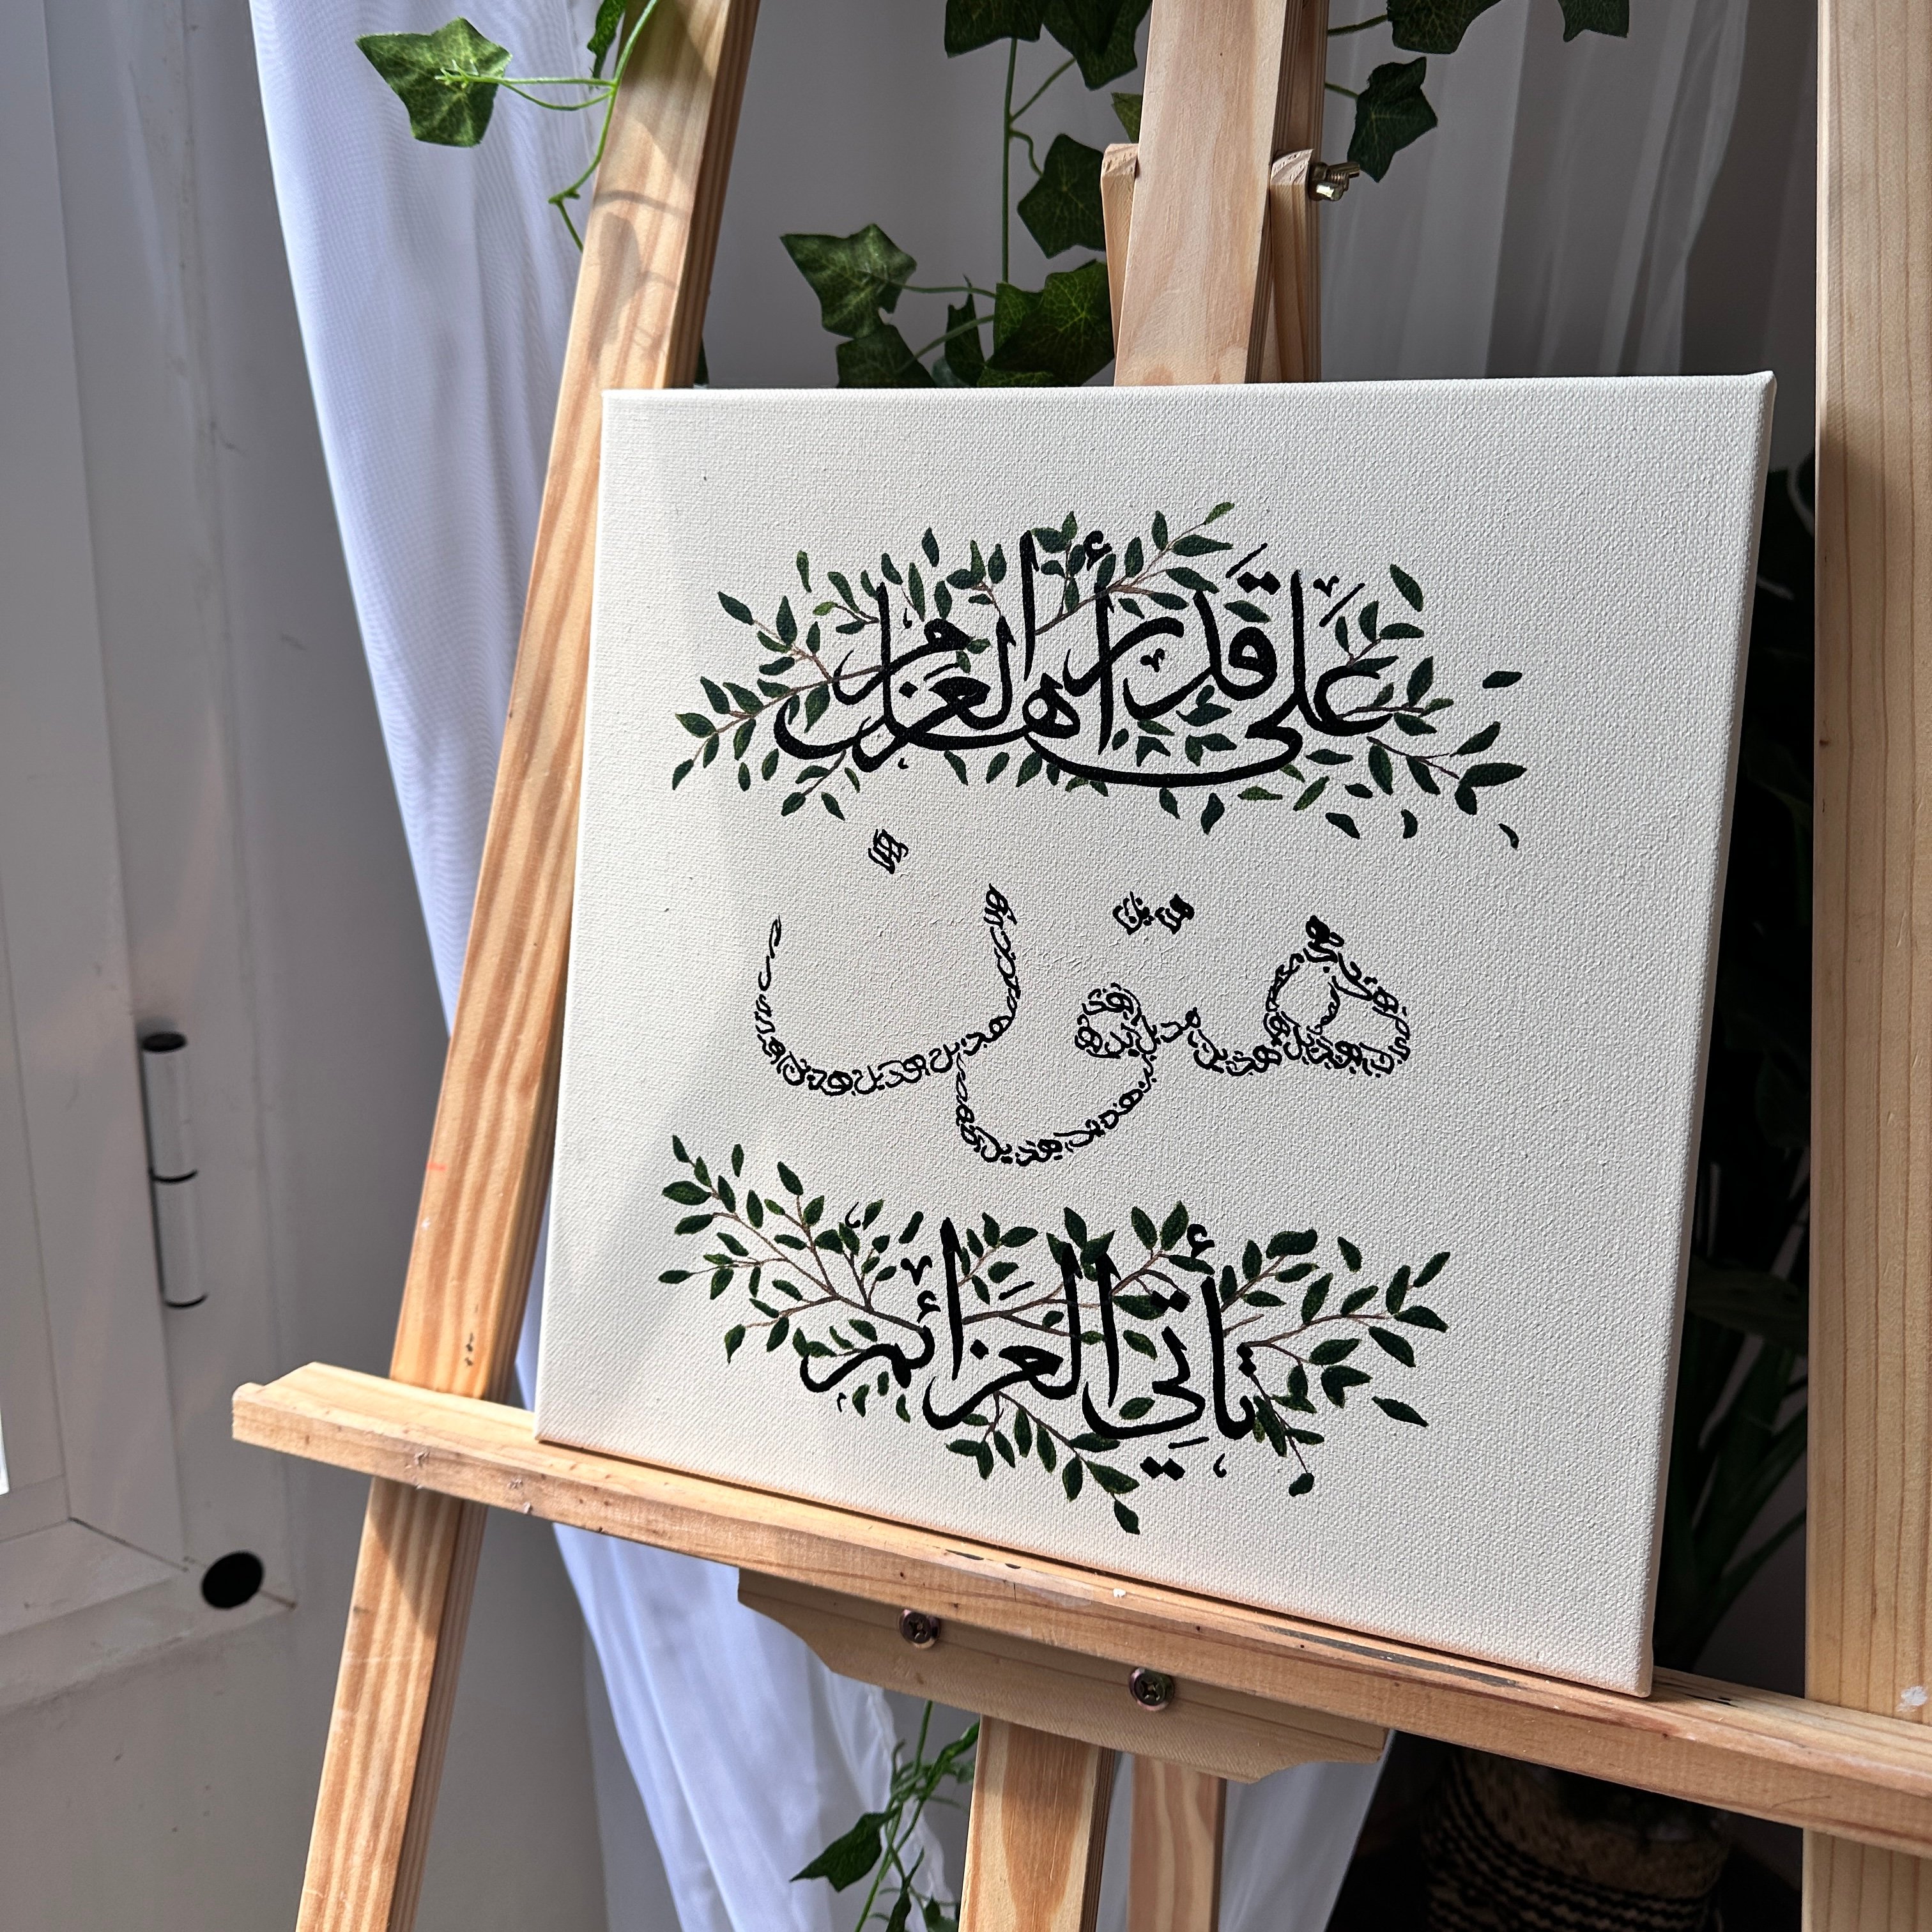 على قدر أهل العزم
هتون
تأتي العزائم